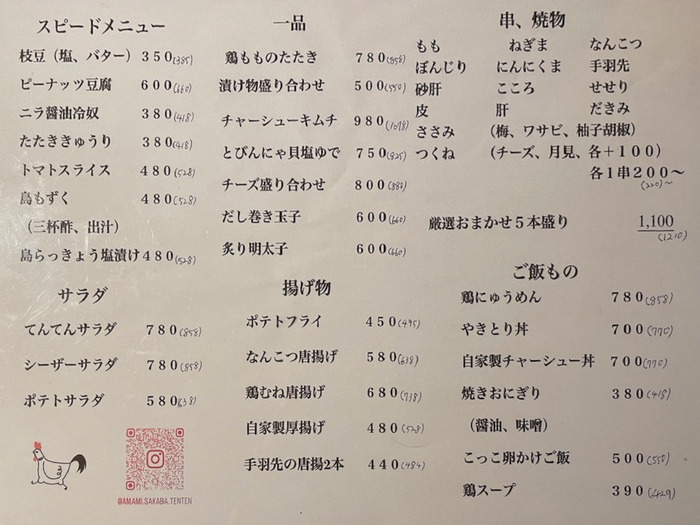 スピードメニュー
枝豆（塩、バター）350(385)
ピーナッツ豆腐 600(660)
ニラ醤油冷奴 380(418)
たたききゅうり 380(418)
トマトスライス 480(528)
島もずく 480(528)
（三杯酢、出汁）
島らっきょう塩漬け480(528)
サラダ
てんてんサラダ 780(858)
シーザーサラダ 780(858)
ポテトサラダ 580(638)
@AMAMI.SAKABA.TENTEN
一品
鶏もものたたき 780(858)
漬け物盛り合わせ 500(550)
チャーシューキムチ 980(1078)
とびんにゃ貝塩ゆで 750(825)
チーズ盛り合わせ 800(880)
だし巻き玉子 600(660)
炙り明太子 600(660)
揚げ物
ポテトフライ 450(495)
なんこつ唐揚げ 580(638)
鶏むね唐揚げ 680(738)
自家製厚揚げ 480(528)
手羽先の唐揚2本 440(484)
串、焼物
もも ねぎま なんこつ
ぼんじり にんにくま 手羽先
砂肝 こころ せせり
皮 肝 だきみ
ささみ （梅、ワサビ、柚子胡椒）
つくね （チーズ、月見、各＋100）
各1串200～
(220)～
厳選おまかせ5本盛り 1,100
(1210)
ご飯もの
鶏にゅうめん 780(858)
やきとり丼 700(770)
自家製チャーシュー丼 700(770)
焼きおにぎり 380(418)
（醤油、味噌）
こっこ卵かけご飯 500(550)
鶏スープ 390(429)